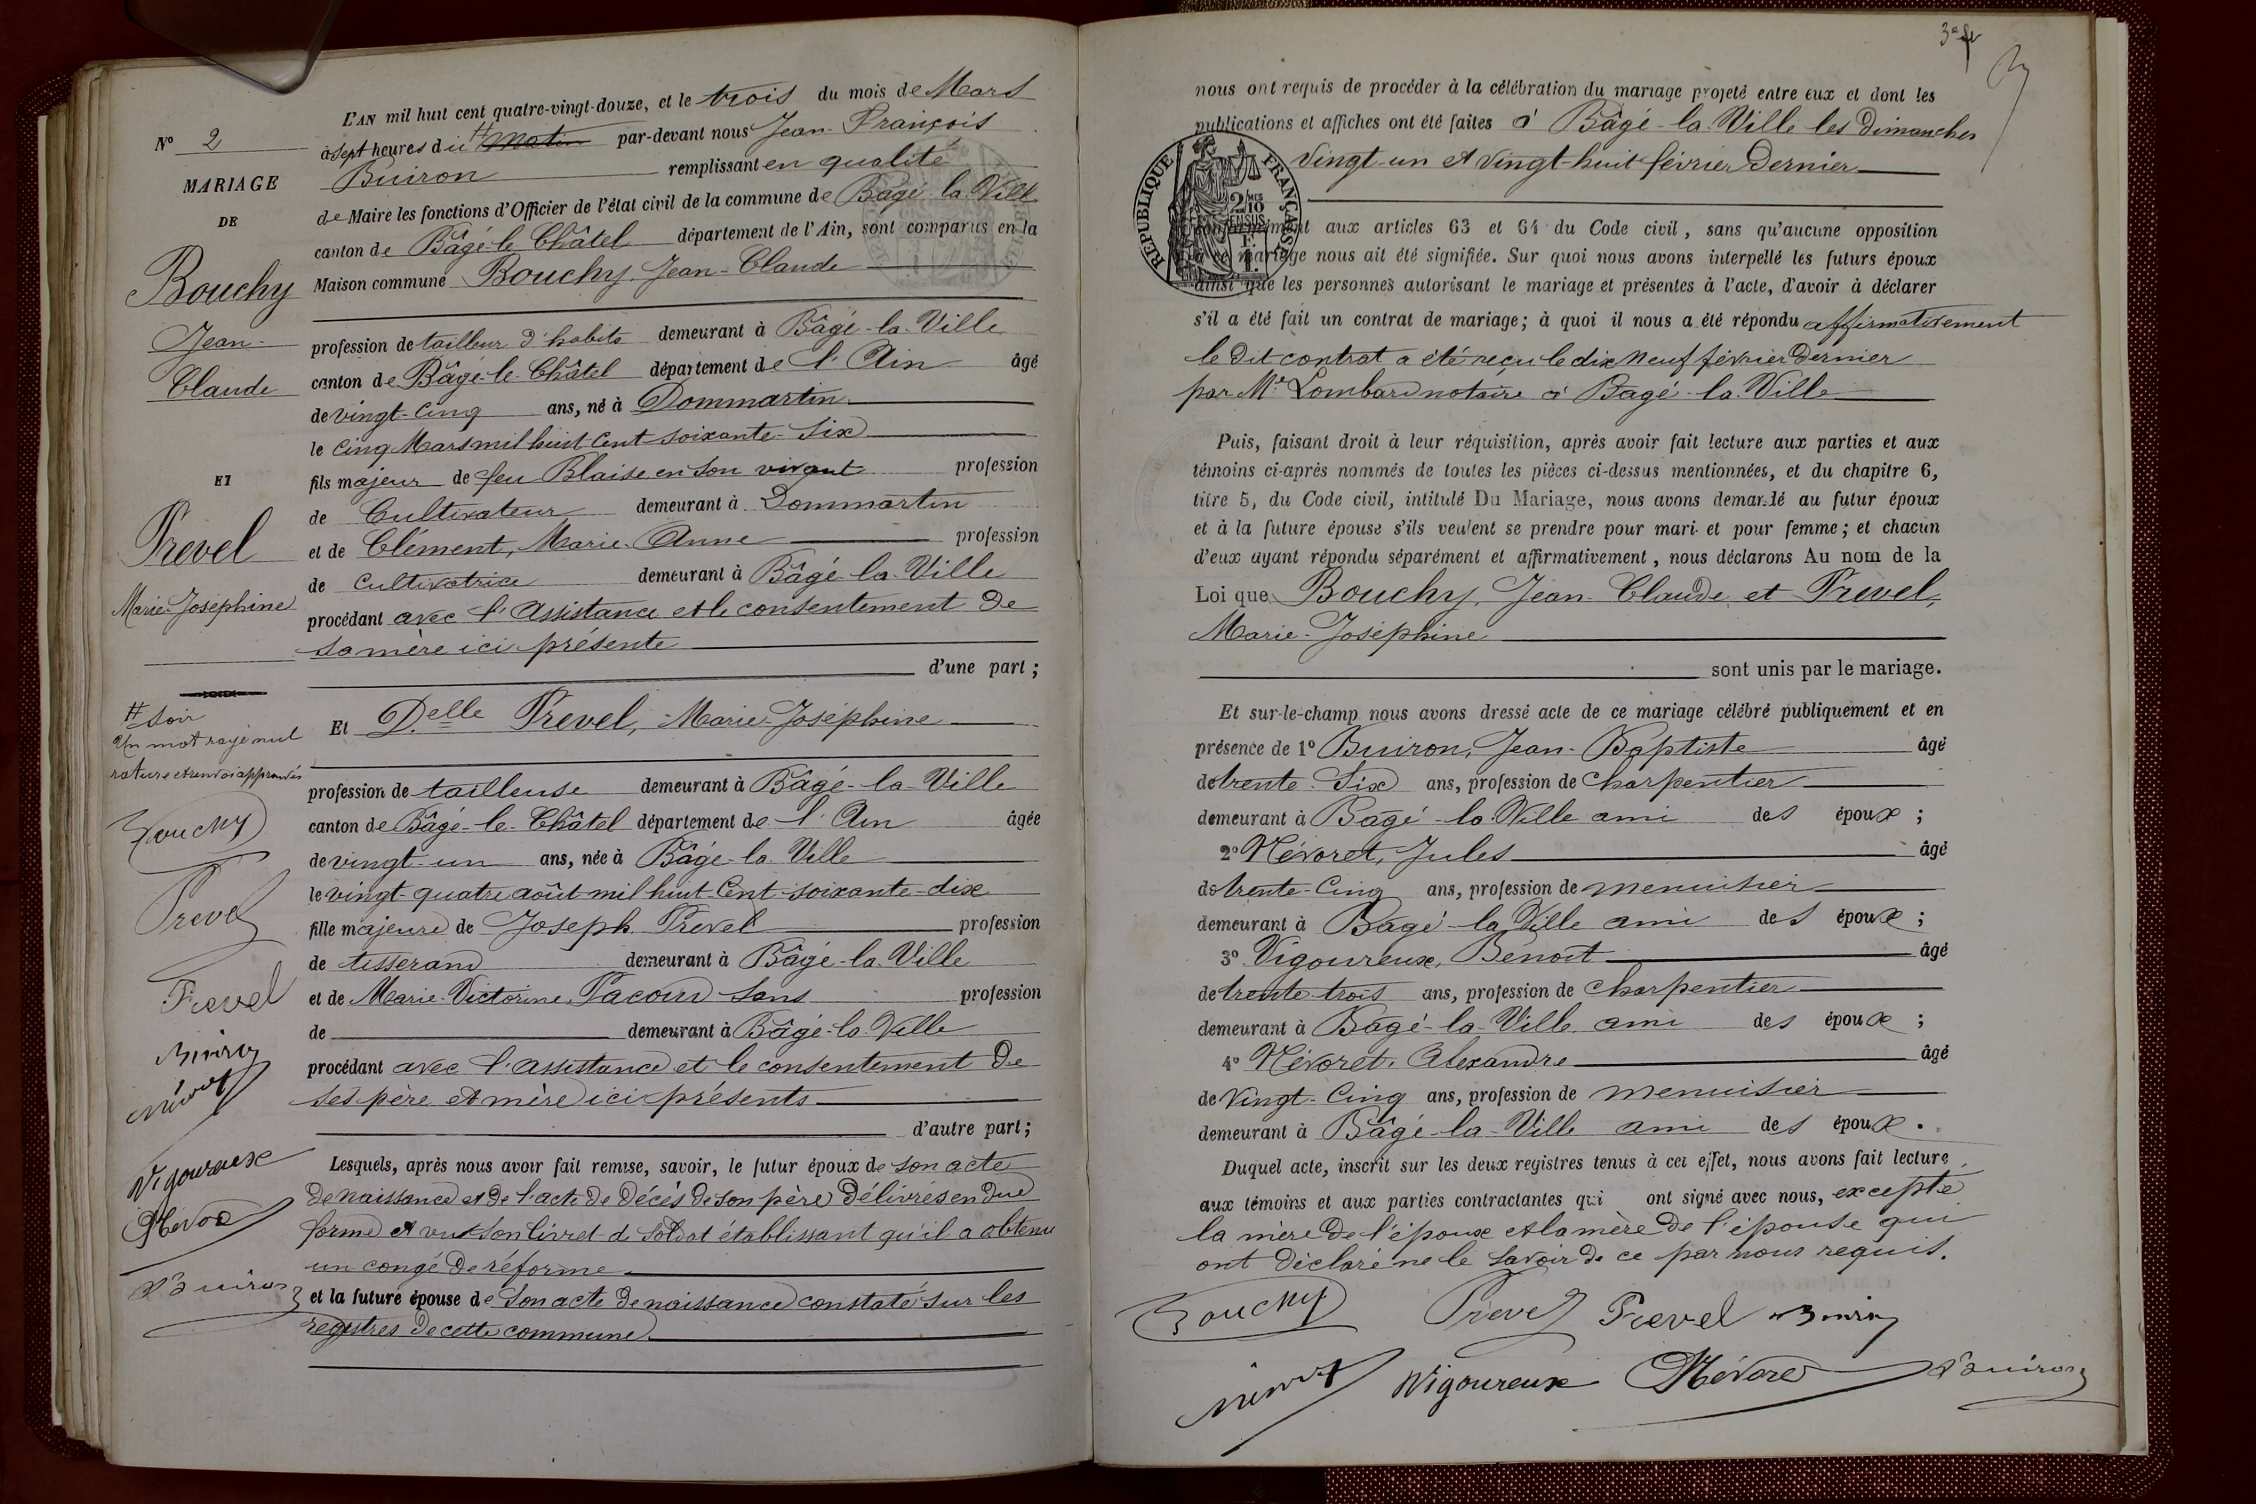 L'AN mil huit cent quatre-vingt-douze, et le trois du mois de Mars
à sept heures du # matin par-devant nous Jean-François
Buiron remplissant en qualité
de Maire les fonctions d'Officier de l'état civil de la commune de Bâgé-la-Ville
canton de Bâgé-le-Châtel département de l'Ain, sont comparus en la
Maison commune Bouchy, Jean-Claude
profession de tailleur d'habits demeurant à Bâgé-la-Ville
canton de Bâgé-le-Châtel département de l'Ain âgé
de vingt-cinq ans, né à Dommartin
le cinq Mars mil huit cent soixante-six
fils majeur de feu Blaise en son vivant profession
de Cultivateur demeurant à Dommartin
et de Clément, Marie-Anne profession
de cultivatrice demeurant à Bâgé-la-Ville
procédant avec l'assistance et le consentement de
sa mère ici présente
d'une part ;
Et Delle Prevel, Marie-Joséphine
profession de tailleuse demeurant à Bâgé-la-Ville
canton de Bâgé-le-Châtel département de l'Ain âgée
de vingt-un ans, née à Bâgé-la-Ville
le vingt-quatre août mil huit-cent-soixante-dix
fille majeure de Joseph Prevel profession
de tisserand demeurant à Bâgé-la-Ville
et de Marie-Victorine Pacoud sans profession
de demeurant à Bâgé-la-Ville
procédant avec l'assistance et le consentement de
ses père et mère ici présents
d'autre part ;
Lesquels, après nous avoir fait remise, savoir, le futur époux de son acte
de naissance et de l'acte de décès de son père délivrés en due
forme et vu son livret de soldat établissant qu'il a obtenu
un congé de réforme
et la future épouse de son acte de naissance constaté sur les
registres de cette commune
N° 2
MARIAGE
DE
Bouchy
Jean-
Claude
ET
Prevel
Marie-Joséphine
# soir
Un mot rayé nul
rature et renvoi approuvés
Bouchy
Prevel
Prevel
Buiron
Névoret
Vigoureux
Névore
Buiron
3e f
nous ont requis de procéder à la célébration du mariage projeté entre eux et dont les
publications et affiches ont été faites à Bâgé-la-Ville les dimanches
vingt-un et vingt-huit février dernier
RÉPUBLIQUE FRANÇAISE
2/10
EN SUS
1 F.
conformément aux articles 63 et 64 du Code civil, sans qu'aucune opposition
à ce mariage nous ait été signifiée. Sur quoi nous avons interpellé les futurs époux
ainsi que les personnes autorisant le mariage et présentes à l'acte, d'avoir à déclarer
s'il a été fait un contrat de mariage ; à quoi il nous a été répondu affirmativement
le dit contrat a été reçu le dix neuf février dernier
par Me Lombard notaire à Bagé-la-Ville
Puis, faisant droit à leur réquisition, après avoir fait lecture aux parties et aux
témoins ci-après nommés de toutes les pièces ci-dessus mentionnées, et du chapitre 6,
titre 5, du Code civil, intitulé Du Mariage, nous avons demandé au futur époux
et à la future épouse s'ils veulent se prendre pour mari et pour femme ; et chacun
d'eux ayant répondu séparément et affirmativement, nous déclarons Au nom de la
Loi que Bouchy, Jean-Claude et Prevel,
Marie-Joséphine
sont unis par le mariage.
Et sur-le-champ nous avons dressé acte de ce mariage célébré publiquement et en
présence de 1° Buiron, Jean-Baptiste âgé
de trente-six ans, profession de charpentier
demeurant à Bagé-la-Ville ami des époux ;
2° Névoret, Jules âgé
de trente-cinq ans, profession de menuisier
demeurant à Bagé-la-Ville ami des époux ;
3° Vigoureux, Benoît âgé
de trente-trois ans, profession de charpentier
demeurant à Bagé-la-Ville ami des époux ;
4° Névoret, Alexandre âgé
de vingt-cinq ans, profession de menuisier
demeurant à Bâgé-la-Ville ami des époux.
Duquel acte, inscrit sur les deux registres tenus à cet effet, nous avons fait lecture
aux témoins et aux parties contractantes qui ont signé avec nous, excepté
la mère de l'époux et la mère de l'épouse qui
ont déclaré ne le savoir de ce par nous requis.
Bouchy Prevel Prevel Buiron
Névoret Vigoureux Névore Buiron